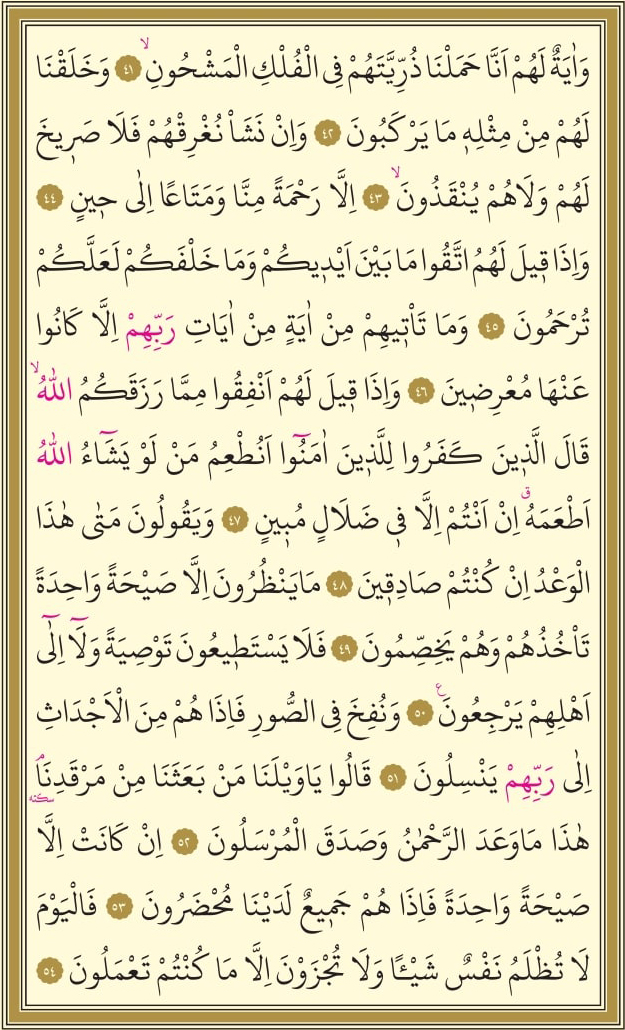 وَاٰيَةٌ لَهُمْ اَنَّا حَمَلْنَا ذُرِّيَّتَهُمْ فِى الْفُلْكِ الْمَشْحُونِۙ ﴿٤١﴾ وَخَلَقْنَا
لَهُمْ مِنْ مِثْلِه۪ مَا يَرْكَبُونَ ﴿٤٢﴾ وَاِنْ نَشَأْ نُغْرِقْهُمْ فَلَا صَر۪يخَ
لَهُمْ وَلَاهُمْ يُنْقَذُونَۙ ﴿٤٣﴾ اِلَّا رَحْمَةً مِنَّا وَمَتَاعًا اِلٰى ح۪ينٍ ﴿٤٤﴾
وَاِذَا ق۪يلَ لَهُمُ اتَّقُوا مَا بَيْنَ اَيْد۪يكُمْ وَمَا خَلْفَكُمْ لَعَلَّكُمْ
تُرْحَمُونَ ﴿٤٥﴾ وَمَا تَأْت۪يهِمْ مِنْ اٰيَةٍ مِنْ اٰيَاتِ رَبِّهِمْ اِلَّا كَانُوا
عَنْهَا مُعْرِض۪ينَ ﴿٤٦﴾ وَاِذَا ق۪يلَ لَهُمْ اَنْفِقُوا مِمَّا رَزَقَكُمُ اللّٰهُۙ
قَالَ الَّذ۪ينَ كَفَرُوا لِلَّذ۪ينَ اٰمَنُٓوا اَنُطْعِمُ مَنْ لَوْ يَشَٓاءُ اللّٰهُ
اَطْعَمَهُۗ اِنْ اَنْتُمْ اِلَّا ف۪ي ضَلَالٍ مُب۪ينٍ ﴿٤٧﴾ وَيَقُولُونَ مَتٰى هٰذَا
الْوَعْدُ اِنْ كُنْتُمْ صَادِق۪ينَ ﴿٤٨﴾ مَايَنْظُرُونَ اِلَّا صَيْحَةً وَاحِدَةً
تَأْخُذُهُمْ وَهُمْ يَخِصِّمُونَ ﴿٤٩﴾ فَلَا يَسْتَط۪يعُونَ تَوْصِيَةً وَلَٓا اِلٰٓى
اَهْلِهِمْ يَرْجِعُونَ۟ ﴿٥٠﴾ وَنُفِخَ فِى الصُّورِ فَاِذَا هُمْ مِنَ الْاَجْدَاثِ
اِلٰى رَبِّهِمْ يَنْسِلُونَ ﴿٥١﴾ قَالُوا يَاوَيْلَنَا مَنْ بَعَثَنَا مِنْ مَرْقَدِنَاۢ سكته
هٰذَا مَاوَعَدَ الرَّحْمٰنُ وَصَدَقَ الْمُرْسَلُونَ ﴿٥٢﴾ اِنْ كَانَتْ اِلَّا
صَيْحَةً وَاحِدَةً فَاِذَا هُمْ جَم۪يعٌ لَدَيْنَا مُحْضَرُونَ ﴿٥٣﴾ فَالْيَوْمَ
لَا تُظْلَمُ نَفْسٌ شَيْـًٔا وَلَا تُجْزَوْنَ اِلَّا مَا كُنْتُمْ تَعْمَلُونَ ﴿٥٤﴾